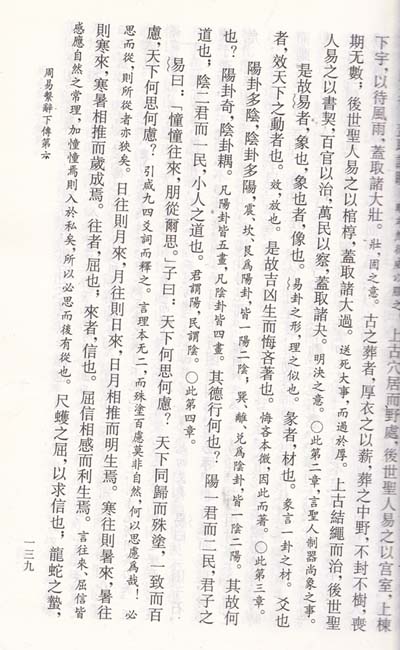 上古穴居而野處，後世聖人易之以宮室，上棟
下宇，以待風雨，蓋取諸大壯。壯，固之意。古之葬者，厚衣之以薪，葬之中野，不封不樹，喪
期無數；後世聖人易之以棺椁，蓋取諸大過。送死大事，而過於厚。上古結繩而治，後世聖
人易之以書契，百官以治，萬民以察，蓋取諸夬。明決之意。〇此第二章，言聖人制器尚象之事。
是故易者，象也，象也者，像也。易卦之形，理之似也。彖者，材也。彖言一卦之材。爻也
者，效天下之動者也。效，放也。是故吉凶生而悔吝著也。悔吝本微，因此而著。〇此第三章。
陽卦多陰，陰卦多陽，震、坎、艮爲陽卦，皆一陽二陰；巽、離、兌爲陰卦，皆一陰二陽。其故何
也？陽卦奇，陰卦耦。凡陽卦皆五畫，凡陰卦皆四畫。其德行何也？陽一君而二民，君子之
道也；陰二君而一民，小人之道也。君謂陽，民謂陰。〇此第四章。
易曰：「憧憧往來，朋從爾思。」子曰：天下何思何慮？天下同歸而殊塗，一致而百
慮，天下何思何慮？引咸九四爻詞而釋之。言理本无二，而殊塗百慮莫非自然，何以思慮爲哉！必
思而從，則所從者亦狹矣。日往則月來，月往則日來，日月相推而明生焉。寒往則暑來，暑往
則寒來，寒暑相推而歲成焉。往者，屈也；來者，信也。屈信相感而利生焉。言往來，屈信皆
感應自然之常理，加憧憧焉則入於私矣，所以必思而後有從也。尺蠖之屈，以求信也；龍蛇之蟄，
周易繫辭下傳第六
一三九